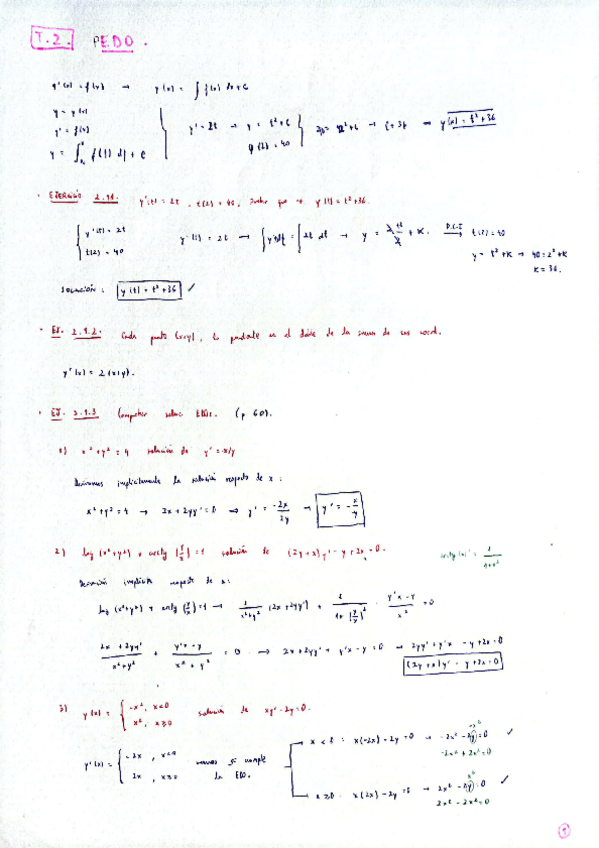 T.2. PEDO.
y'(x) = f(x) → y(x) = ∫ f(x) dx + C
y = y(x)
y' = f(x)
y' = 2t → y = t²+C
y(2) = 40
y(x) = t²+36
• EJERCICIO 2.1.1. y'(t) = 2t, t(2) = 40, que → y(t) = t²+36.
y'(t) = 2t
t(2) = 40
y'(t) = 2t → ∫ y'dt = ∫ 2t dt → y = 2 t²/2 + K. P.C.I → t(2) = 40
y = t²+K → 40 = 2²+K
K = 36.
SOLUCIÓN: y(t) = t²+36 ✓
• EJ. 2.1.2. Cada punto (x,y), la pendiente es el doble de la suma de sus coord.
y'(x) = 2(x+y).
• EJ. 2.1.3 Comprobar soluc. EDOs. (p 60).
1) x²+y² = 4 solución de y' = -x/y
Derivamos implícitamente la solución respecto de x:
x²+y² = 4 → 2x + 2yy' = 0 → y' = -2x/2y → y' = -x/y
2) log (x²+y²) + arctg (y/x) = 1 solución de (2y+x)y' - y + 2x = 0. arctg(x)' = 1/(1+x²)
Derivación implícita respecto de x:
log (x²+y²) + arctg (y/x) = 1 → 1/(x²+y²) (2x+2yy') + 1/(1+(y/x)²) · (y'x - y)/x² = 0
(2x + 2yy')/(x²+y²) + (y'x - y)/(x²+y²) = 0 → 2x + 2yy' + y'x - y = 0 → 2yy' + y'x - y + 2x = 0
(2y+x)y' - y + 2x = 0
3) y(x) = { -x², x<0
x², x≥0 solución de xy' - 2y = 0.
y'(x) = { -2x, x<0
2x, x≥0 vemos si cumple la EDO.
x < 0 : x(-2x) - 2y = 0 → -2x² - 2y = 0 ✓
-x²
-2x² + 2x² = 0
x ≥ 0 : x(2x) - 2y = 0 → 2x² - 2y = 0 ✓
x²
2x² - 2x² = 0